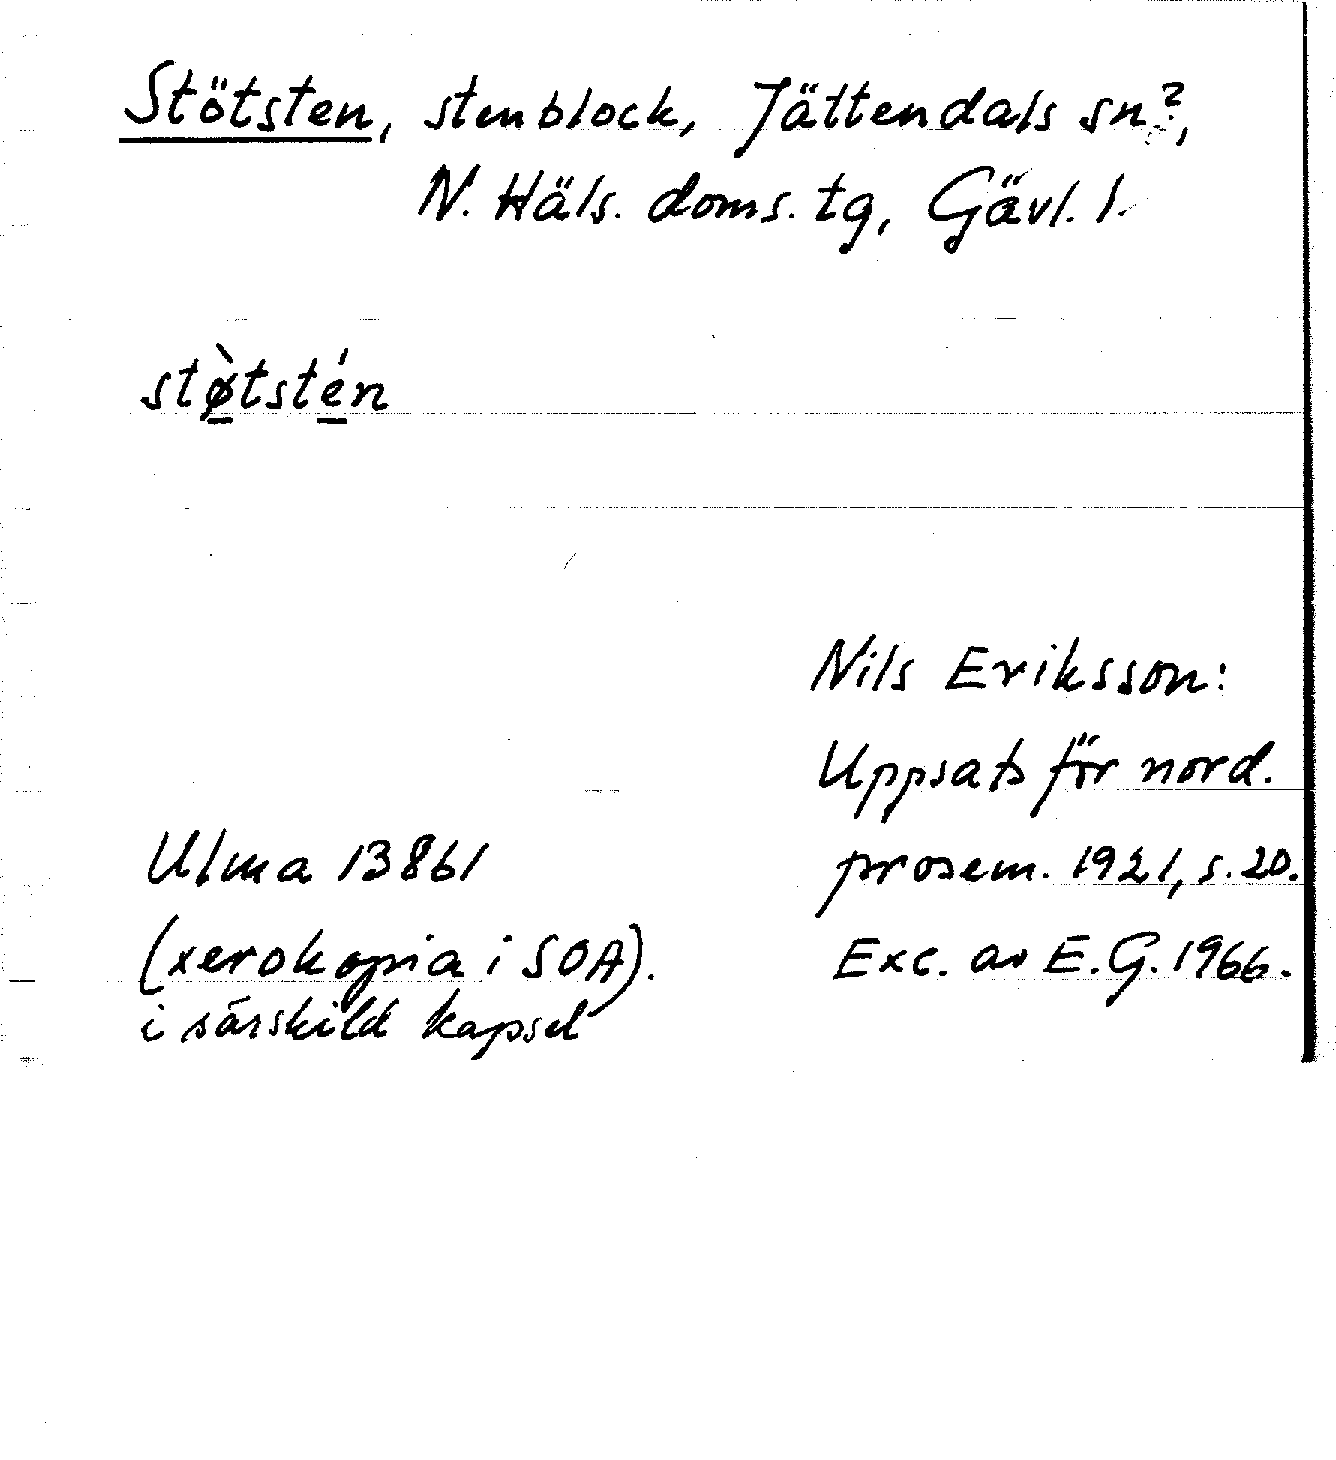 Stötsten, stenblock, Jättendals sn?,
N. Häls. doms. tg, Gävl. l.
stø̀tstén
Nils Eriksson:
Uppsats för nord.
prosem. 1921, s. 20.
Exc. av E.G. 1966.
Ulma 13861
(xerokopia i SOA).
i särskild kapsel